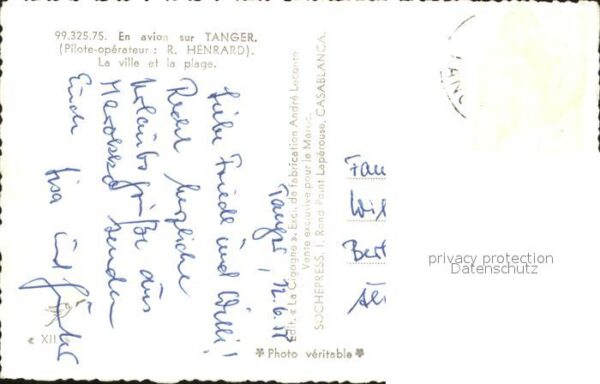 99.325.75. En avion sur TANGER.
(Pilote-opérateur : R. HENRARD).
La ville et la plage.
Tanger, 12.6.
Liebe Friedel und Willi!
Recht herzliche
Urlaubsgrüße aus
Marokko senden
Euch Lisa und Günter
Edit. « La Cigogne ». Exc. de fabrication André Leconte
Vente exclusive pour le Maroc
SOCHEPRESS, 1, Rond Point Lapérouse, CASABLANCA.
« XII
Photo véritable
TANG
Fam
Wil
Bert
privacy protection
Datenschutz